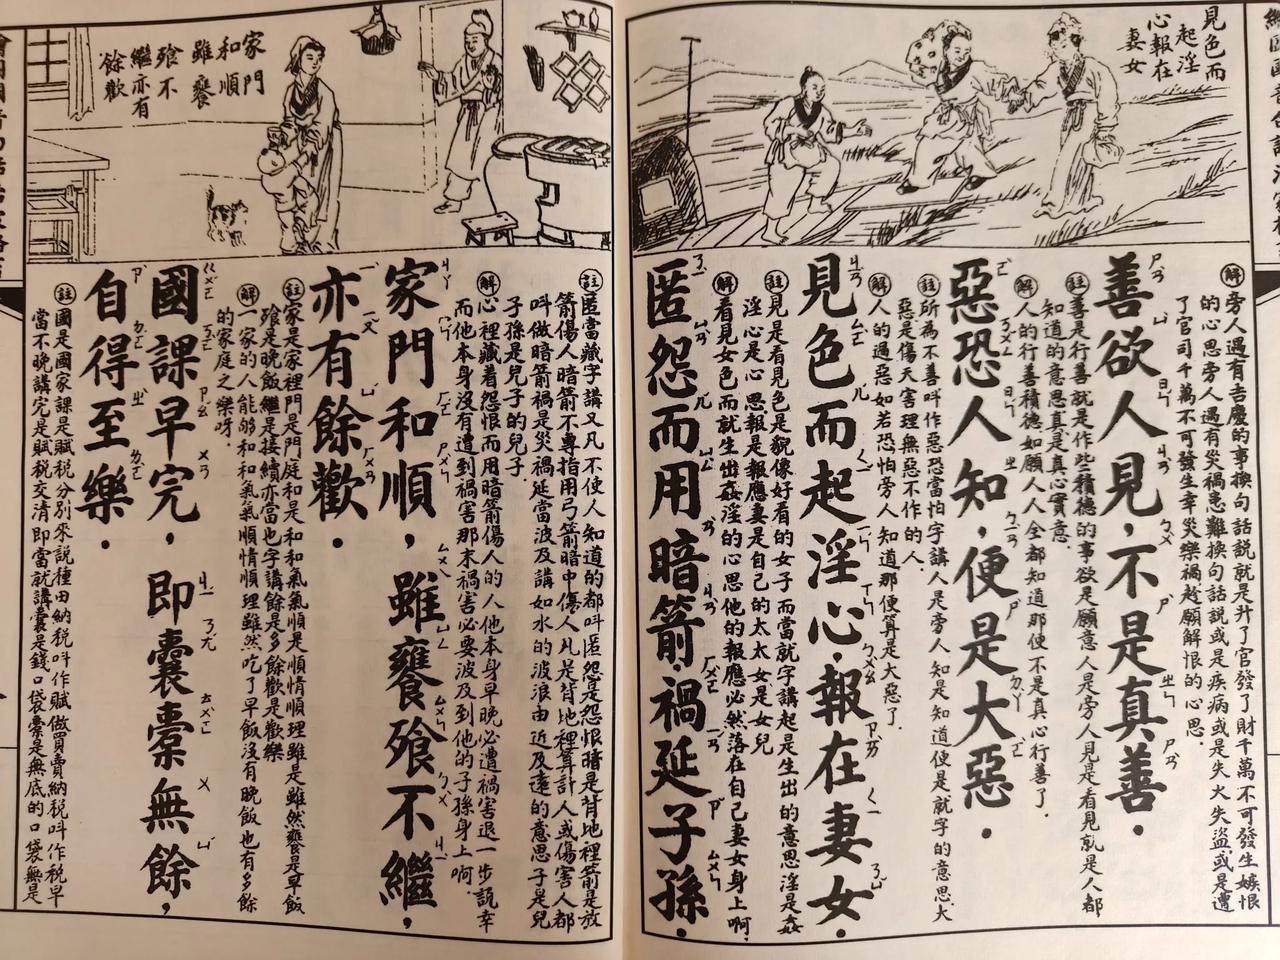 見色而
起淫
心報在
妻女
解旁人遇有吉慶的事換句話說就是升了官發了財千萬不可發生嫉恨
的心思旁人遇有災禍患難換句話說或是疾病或是失火失盜或是遭
了官司千萬不可發生幸災樂禍趁願解恨的心思.
善欲人見,不是真善.
註善是行善就是作些積德的事欲是願意人是旁人見是看見就是人都
知道的意思真是真心實意.
解人的行善積德如願人人全都知道那便不是真心行善了.
惡恐人知,便是大惡.
註所為不善叫作惡恐當怕字講人是旁人知是知道便是就字的意思大
惡是傷天害理無惡不作的人.
解人的過惡如若恐怕旁人知道那便算是大惡了.
見色而起淫心,報在妻女.
註見是看見色是貌像好看的女子而當就字講起是生出的意思淫是姦
淫心是心思報是報應妻是自己的太太女是女兒
解看見女色而就生出姦淫的心思他的報應必然落在自己妻女身上啊.
匿怨而用暗箭,禍延子孫.
註匿當藏字講又凡不使人知道的都叫匿怨是怨恨暗是背地裡箭是放
箭傷人暗箭不專指用弓箭暗中傷人凡是背地裡算計人或傷害人都
叫做暗箭禍是災禍延當波及講如水的波浪由近及遠的意思子是兒
子孫是兒子的兒子.
解心裡藏着怨恨而用暗箭傷人的人他本身早晚必遭禍害退一步說幸
而他本身沒有遭到禍害那末禍害必要波及到他的子孫身上啊.
家門
和順
雖饔
飧不
繼亦有
餘歡
家門和順,雖饔飧不繼,
亦有餘歡.
註家是家裡門是門庭和是和和氣氣順是順情順理雖是雖然饔是早飯
飧是晚飯繼是接續亦當也字講餘是多餘歡是歡樂
解一家的人能够和和氣氣順情順理雖然吃了早飯沒有晚飯也有多餘
的家庭之樂呀.
國課早完,即囊橐無餘,
自得至樂.
註國是國家課是賦稅分別來說種田納稅叫作賦做買賣納稅叫作稅早
當不晚講完是賦稅交清即當就講囊是錢口袋橐是無底的口袋無是